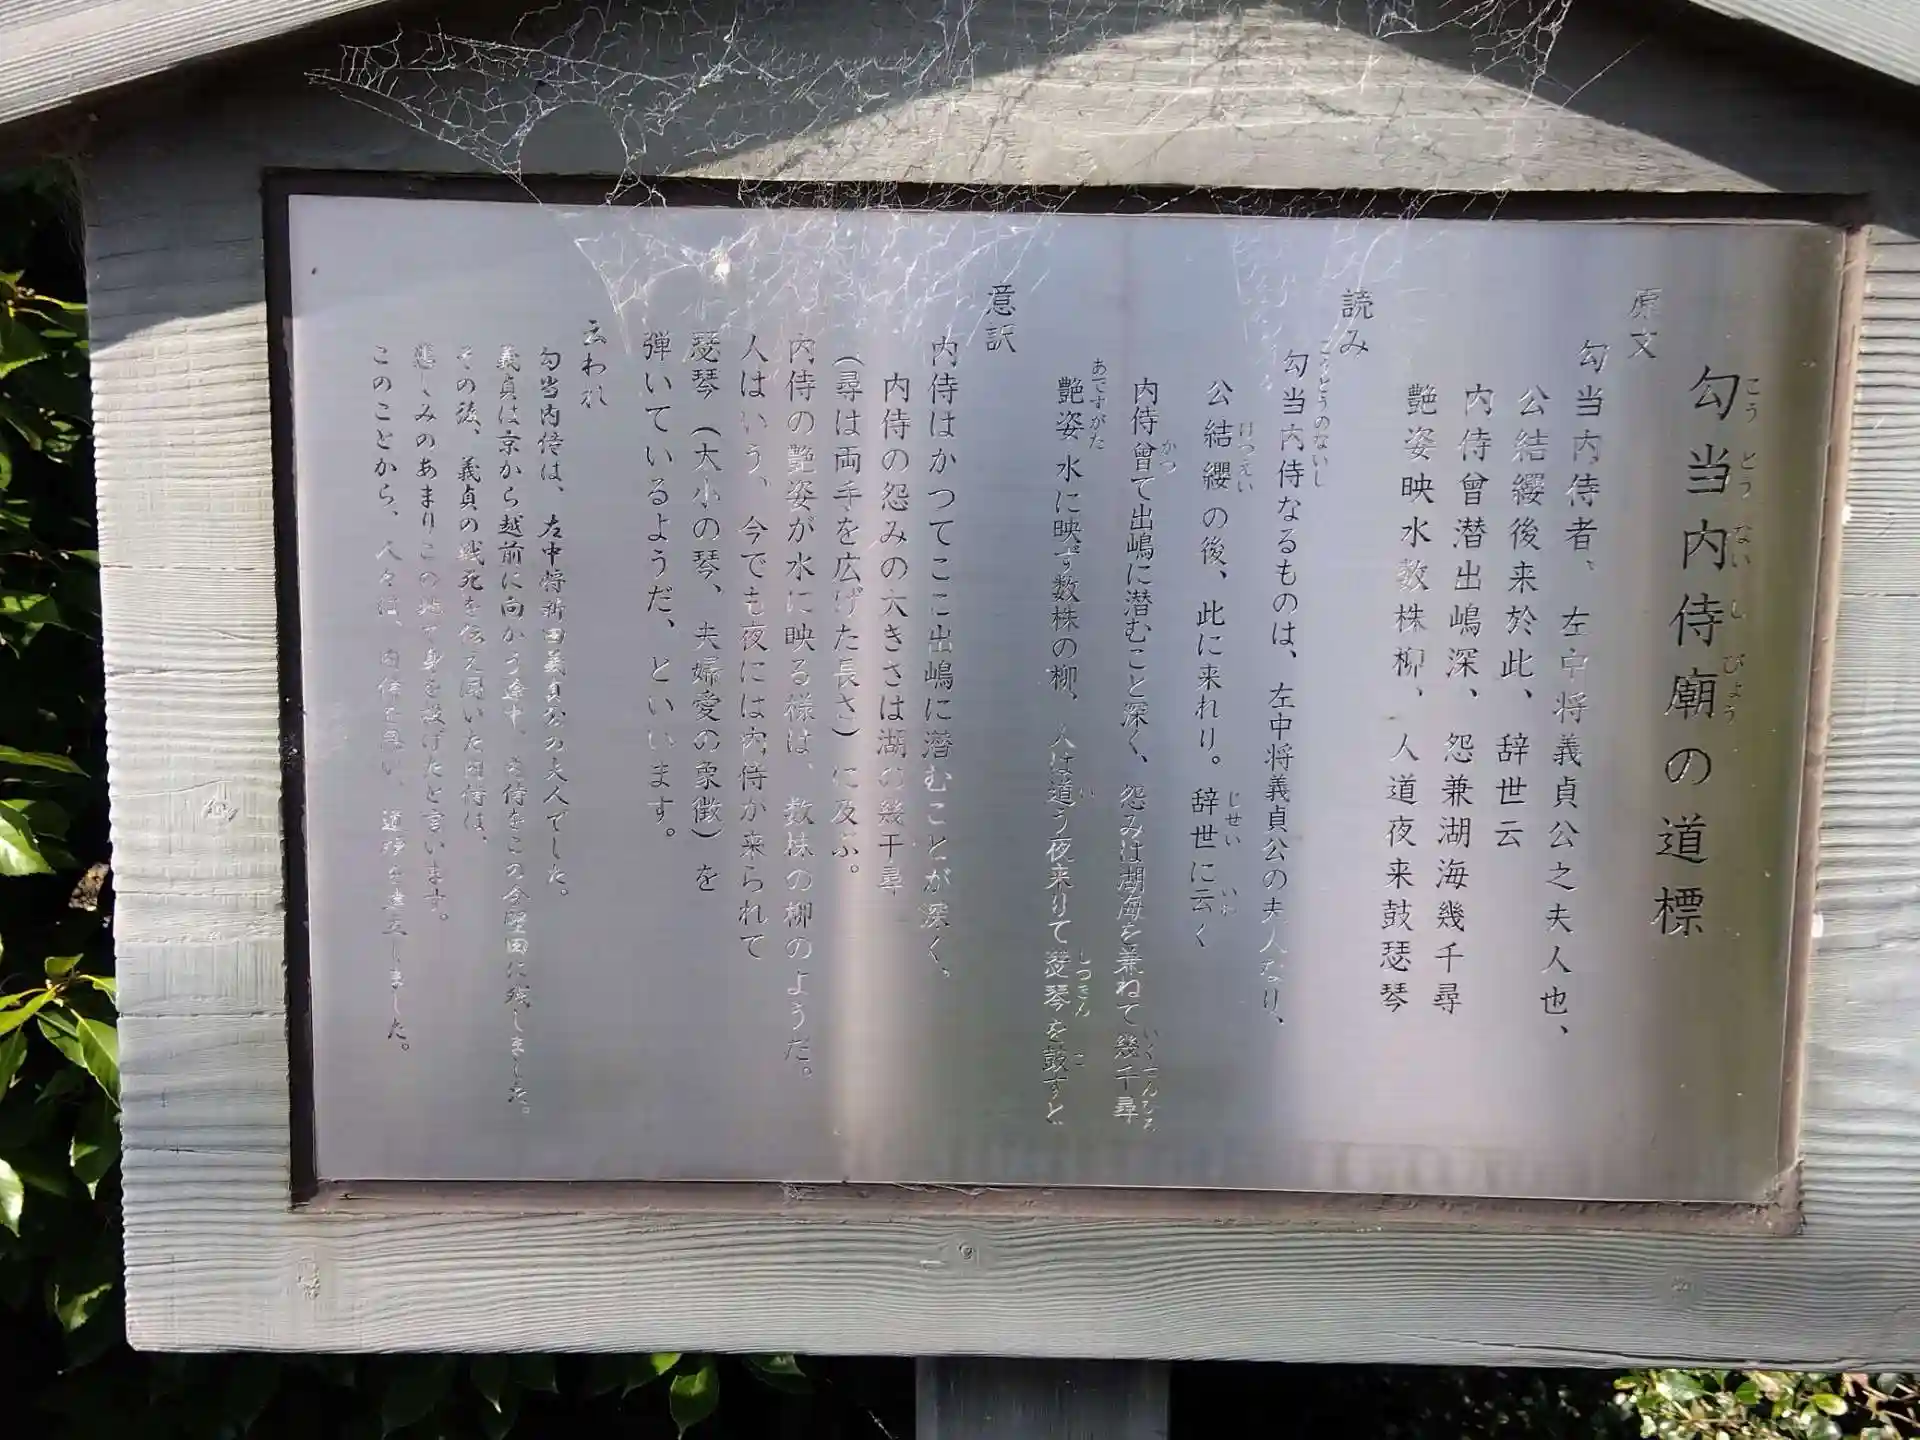 勾当内侍廟の道標
こうとうないしびょう
原文
勾当内侍者、左中将義貞公之夫人也、
公結纓後来於此、辞世云
内侍曾潜出嶋深、怨兼湖海幾千尋
艶姿映水数株柳、人道夜来鼓瑟琴
読み
こうとうのないし
勾当内侍なるものは、左中将義貞公の夫人なり、
けつえい じせい いわ
公結纓の後、此に来れり。辞世に云く
かつ いくせんひろ
内侍曾て出嶋に潜むこと深く、怨みは湖海を兼ねて幾千尋
あですがた い しつきん こ
艶姿水に映ず数株の柳、人は道う夜来りて瑟琴を鼓すと
意訳
内侍はかつてここ出嶋に潜むことが深く、
内侍の怨みの大きさは湖の幾千尋
(尋は両手を広げた長さ)に及ぶ。
内侍の艶姿が水に映る様は、数株の柳のようだ。
人はいう、今でも夜には内侍が来られて
瑟琴(大小の琴、夫婦愛の象徴)を
弾いているようだ、といいます。
云われ
勾当内侍は、左中将新田義貞公の夫人でした。
義貞は京から越前に向かう途中、内侍をこの今堅田に残しました。
その後、義貞の戦死を伝え聞いた内侍は、
悲しみのあまりこの地で身を投げたと言います。
このことから、人々は、内侍を思い、道標を建立しました。